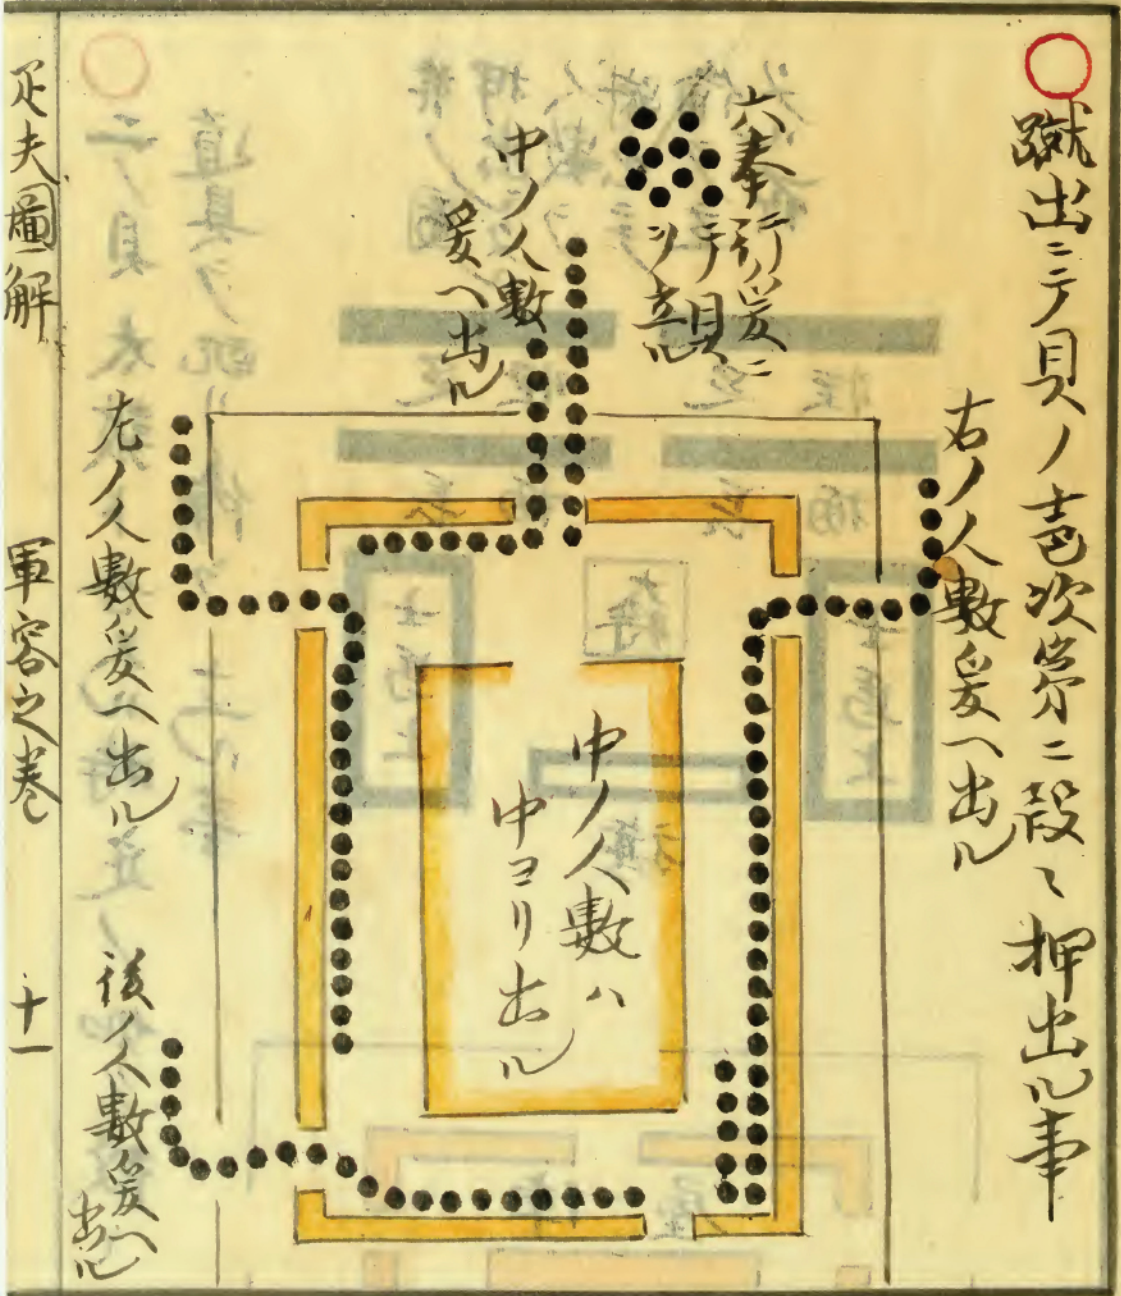 蹴出ニテ貝ノ壱次第ニ段々押出ル事
右ノ人數爰ヘ出ル
六奉行爰ニ
ニテ貝
ツ立ル
中ノ人數
爰ヘ出ル
中ノ人數ハ
中ヨリ出ル
左ノ人數爰ヘ出ル
後ノ人數爰ヘ
出ル
疋夫圖解
軍容之巻
十一